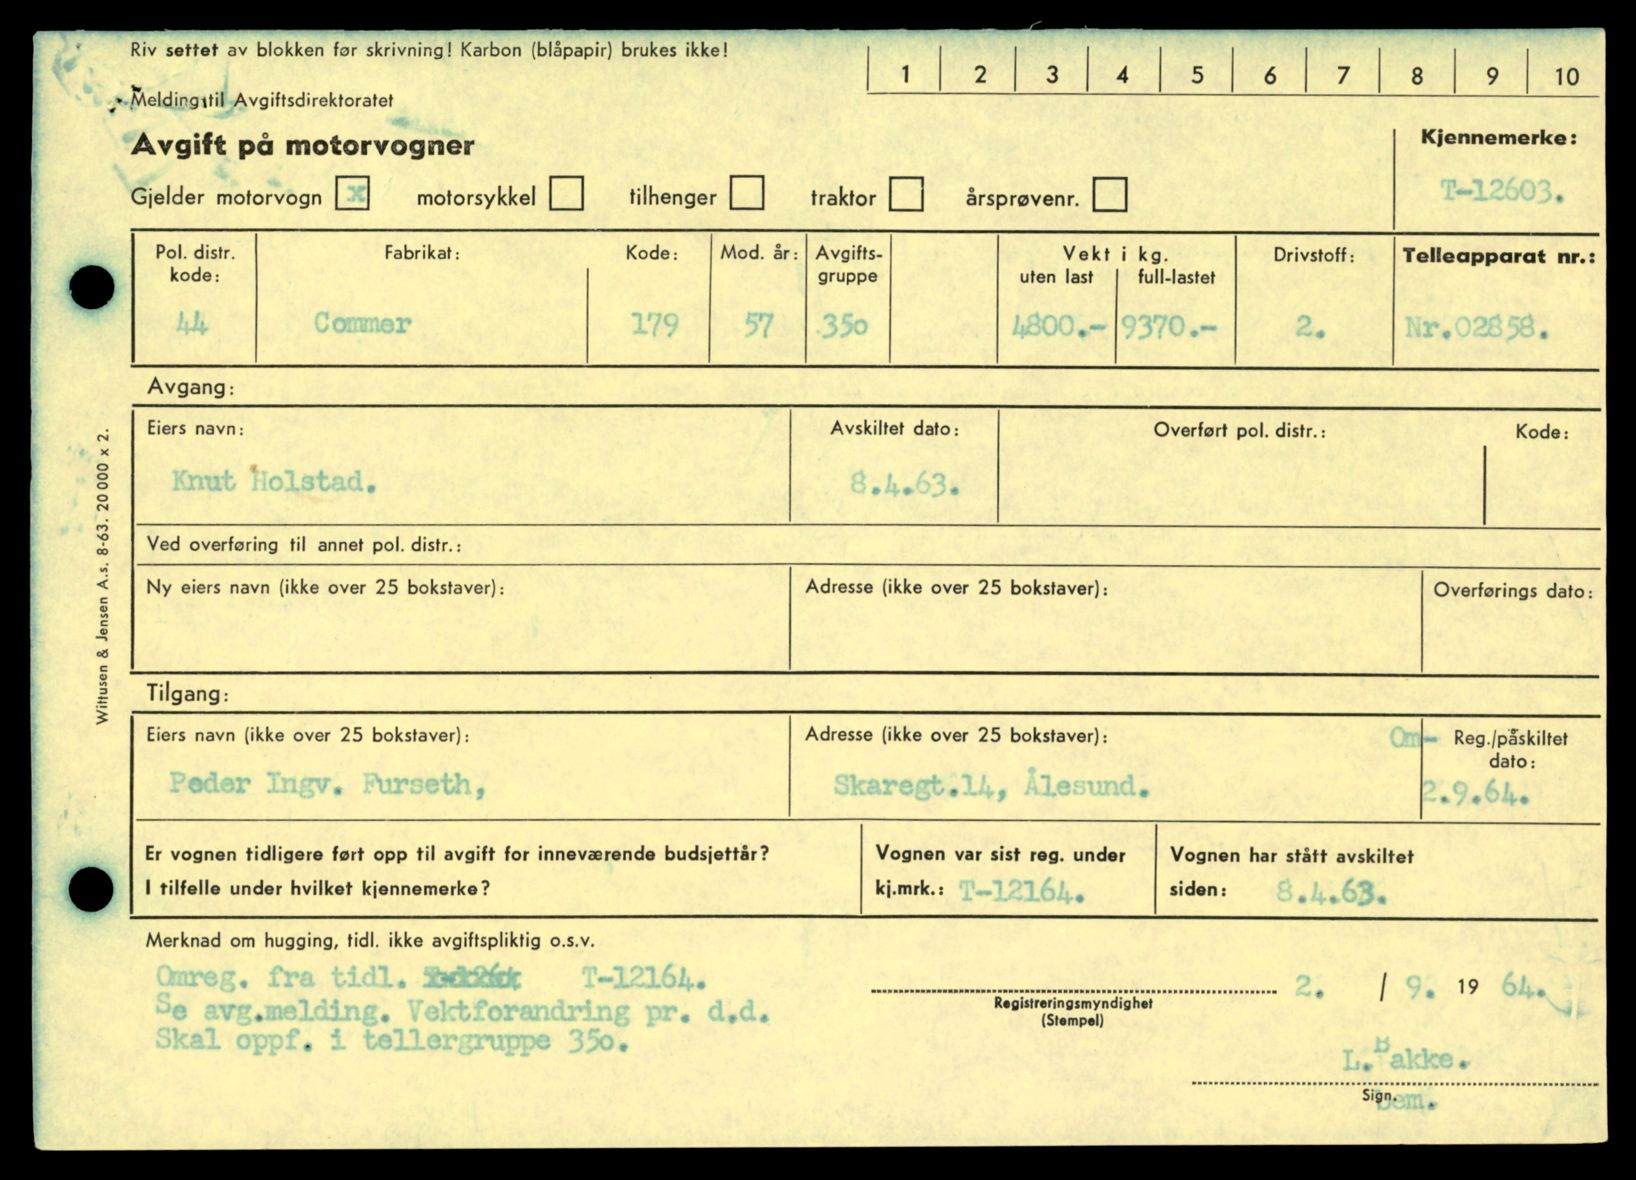 Riv settet av blokken før skrivning! Karbon (blåpapir) brukes ikke!
1 2 3 4 5 6 7 8 9 10
Melding til Avgiftsdirektoratet
Avgift på motorvogner
Kjennemerke:
Gjelder motorvogn x motorsykkel tilhenger traktor årsprøvenr.
T-12603.
Pol. distr. kode:
Fabrikat:
Kode:
Mod. år:
Avgifts-
gruppe
Vekt i kg.
uten last full-lastet
Drivstoff:
Telleapparat nr.:
44 Commer 179 57 350 4800.- 9370.- 2. Nr.02858.
Avgang:
Eiers navn: Avskiltet dato: Overført pol. distr.: Kode:
Knut Holstad. 8.4.63.
Ved overføring til annet pol. distr.:
Ny eiers navn (ikke over 25 bokstaver): Adresse (ikke over 25 bokstaver): Overførings dato:
Tilgang:
Eiers navn (ikke over 25 bokstaver): Adresse (ikke over 25 bokstaver): Om- Reg./påskiltet
dato:
Peder Ingv. Furseth, Skaregt.14, Ålesund. 2.9.64.
Er vognen tidligere ført opp til avgift for inneværende budsjettår?
I tilfelle under hvilket kjennemerke?
Vognen var sist reg. under
kj.mrk.: T-12164.
Vognen har stått avskiltet
siden: 8.4.63.
Merknad om hugging, tidl. ikke avgiftspliktig o.s.v.
Omreg. fra tidl. T-12164.
Se avg.melding. Vektforandring pr. d.d.
Skal oppf. i tellergruppe 350.
2. / 9. 19 64.
Registreringsmyndighet
(Stempel)
L.Bakke.
Sign.
Wittusen & Jensen A.s. 8-63. 20 000 x 2.